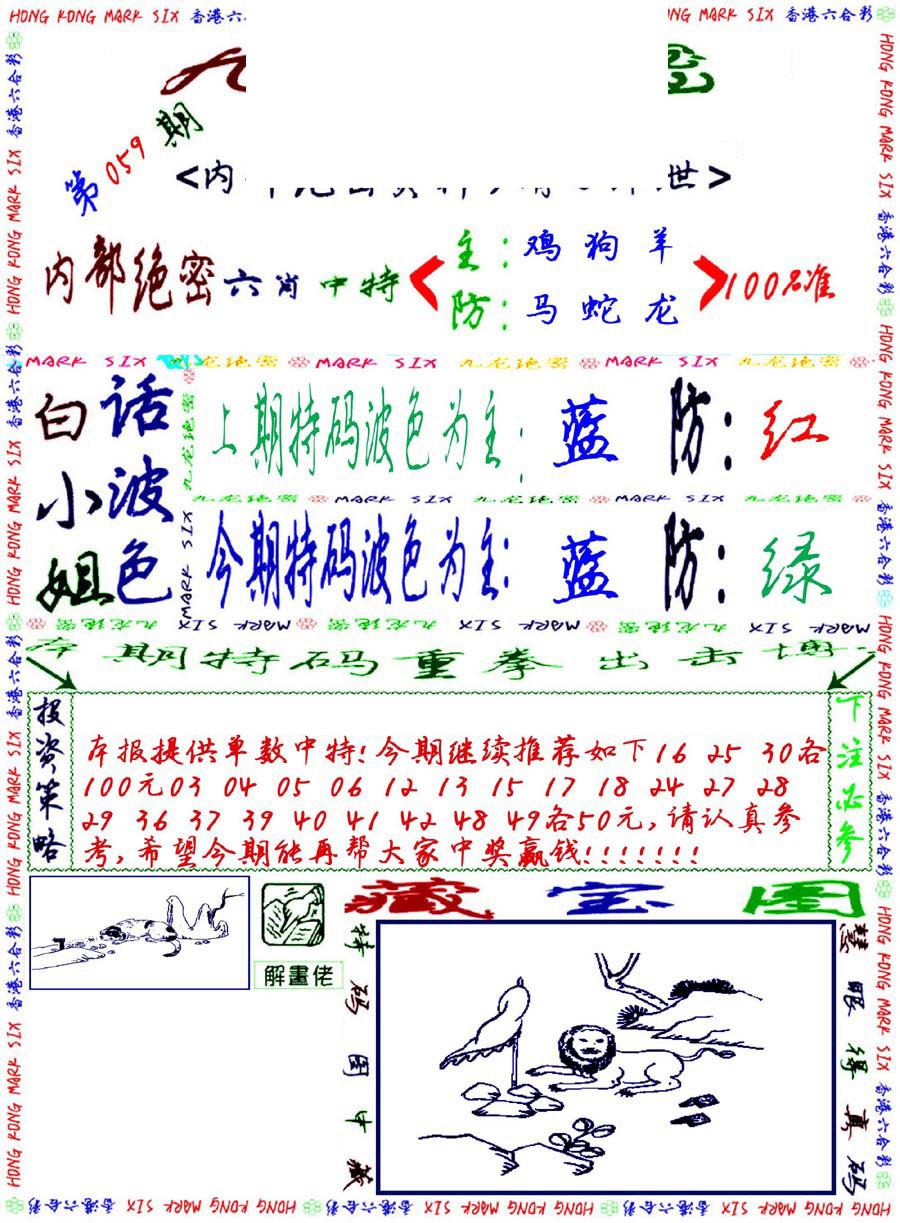 HONG KONG MARK SIX 香港六合彩
第059期
<内
世>
内部绝密六肖中特
主：鸡狗羊
防：马蛇龙
100%准
MARK SIX 九龙绝密 MARK SIX 九龙绝密 MARK SIX 九龙绝密
白小姐
话波色
上期特码波色为主：蓝 防：红
九龙绝密 MARK SIX 九龙绝密 MARK SIX 九龙绝密
今期特码波色为主：蓝 防：绿
MARK SIX 九龙绝密 MARK SIX 九龙绝密 MARK SIX 九龙绝密
期特码重拳出击
投资策略
本报提供单数中特!今期继续推荐如下16 25 30各
100元03 04 05 06 12 13 15 17 18 24 27 28
29 36 37 39 40 41 42 48 49各50元,请认真参
考,希望今期能再帮大家中奖赢钱!!!!!!!
下注必参
解畫佬
藏宝图
特码图中藏
慧眼得真码
HONG KONG MARK SIX 香港六合彩